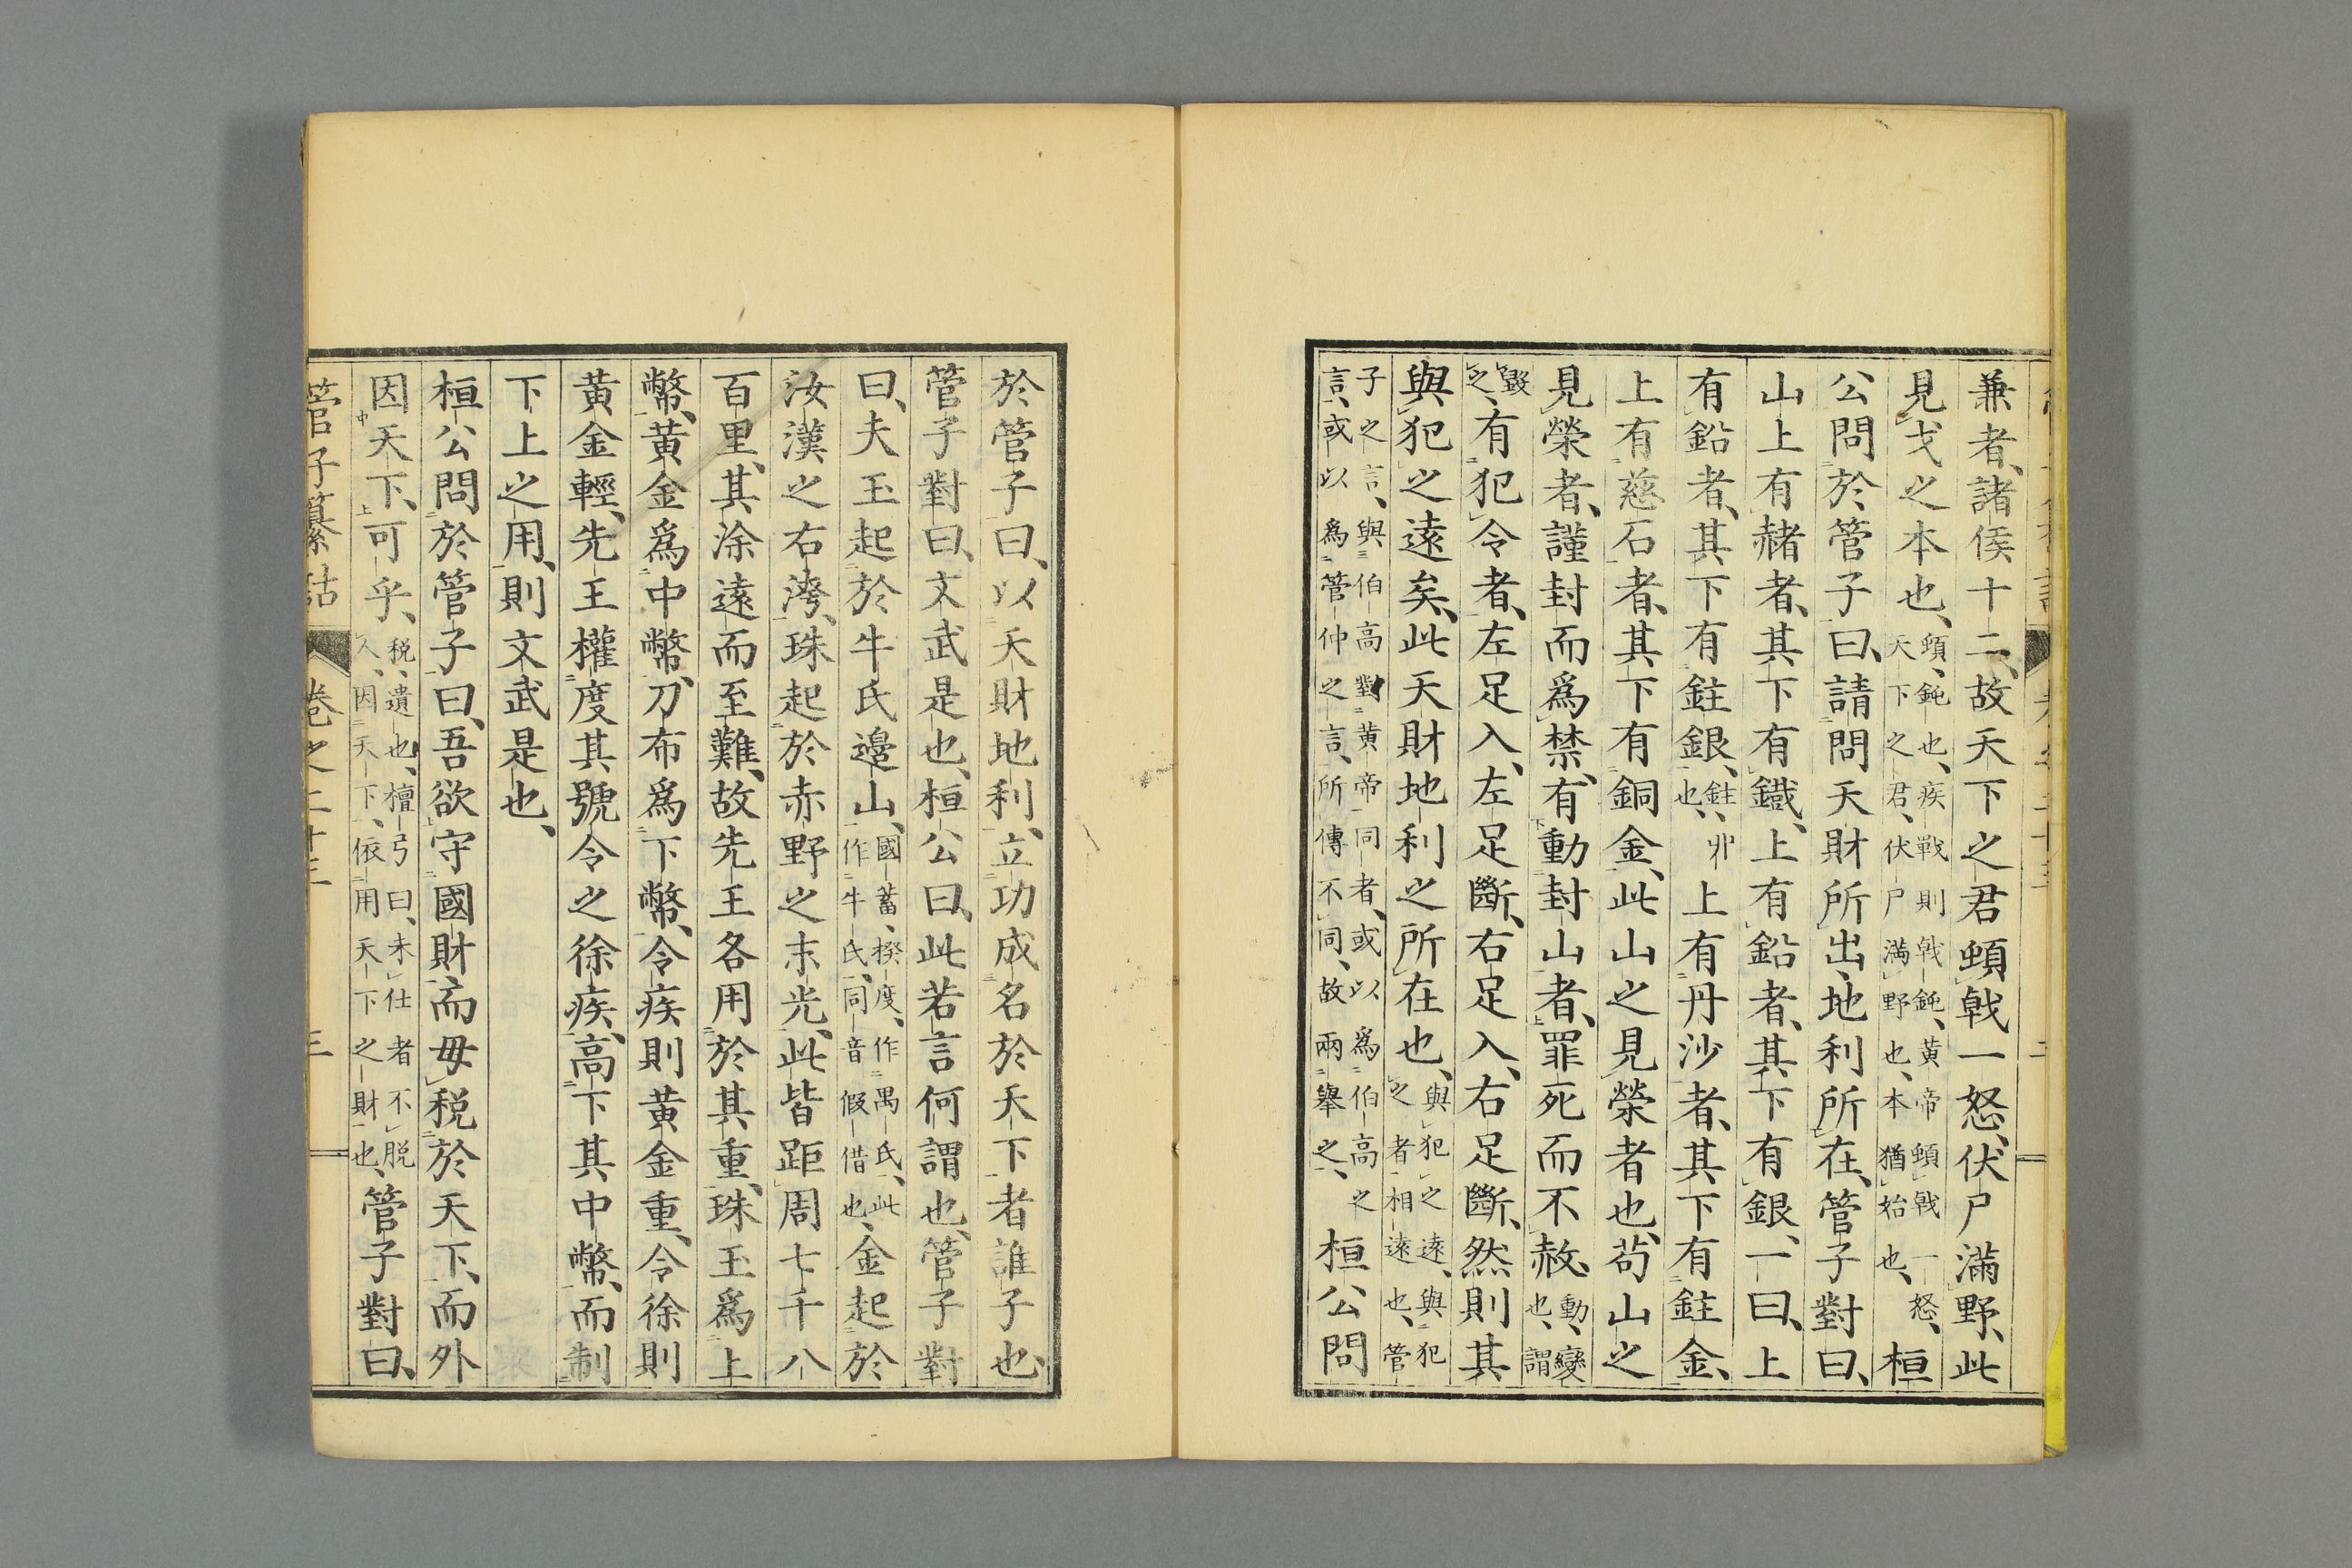 兼者、諸侯十二、故天下之君頓戟一怒、伏尸滿野、此
見戈之本也、頓、鈍也、疾戰則戟鈍、黃帝頓戟一怒、天下之君、伏尸滿野也、本猶始也、桓
公問於管子曰、請問天財所出、地利所在、管子對曰、
山上有赭者、其下有鐵、上有鉛者、其下有銀、一曰、上
有鉛者、其下有鉒銀、鉒、丱也、上有丹沙者、其下有鉒金、
上有慈石者、其下有銅金、此山之見榮者也、苟山之
見榮者、謹封而爲禁、有動封山者、罪死而不赦、動、變也、謂
毀之、有犯令者、左足入、左足斷、右足入、右足斷、然則其
與犯之遠矣、此天財地利之所在也、與犯之遠、與犯之者相遠也、管
子之言、與伯高對黃帝同者、或以爲伯高之言、或以爲管仲之言、所傳不同、故兩舉之、桓公問
於管子曰、以天財地利、立功成名於天下者誰子也、
管子對曰、文武是也、桓公曰、此若言何謂也、管子對
曰、夫玉起於牛氏邊山、國蓄、揆度、作禺氏、此作牛氏、同音假借也、金起於
汝漢之右洿、珠起於赤野之末光、此皆距周七千八
百里、其涂遠而至難、故先王各用於其重、珠玉爲上
幣、黃金爲中幣、刀布爲下幣、令疾則黃金重、令徐則
黃金輕、先王權度其號令之徐疾、高下其中幣、而制
下上之用、則文武是也、
桓公問於管子曰、吾欲守國財、而毋稅於天下、而外
因天下、可乎、稅、遺也、檀弓曰、未仕者不脫人、因天下、依用天下之財也、管子對曰、
管子纂詁 卷之二十三 三